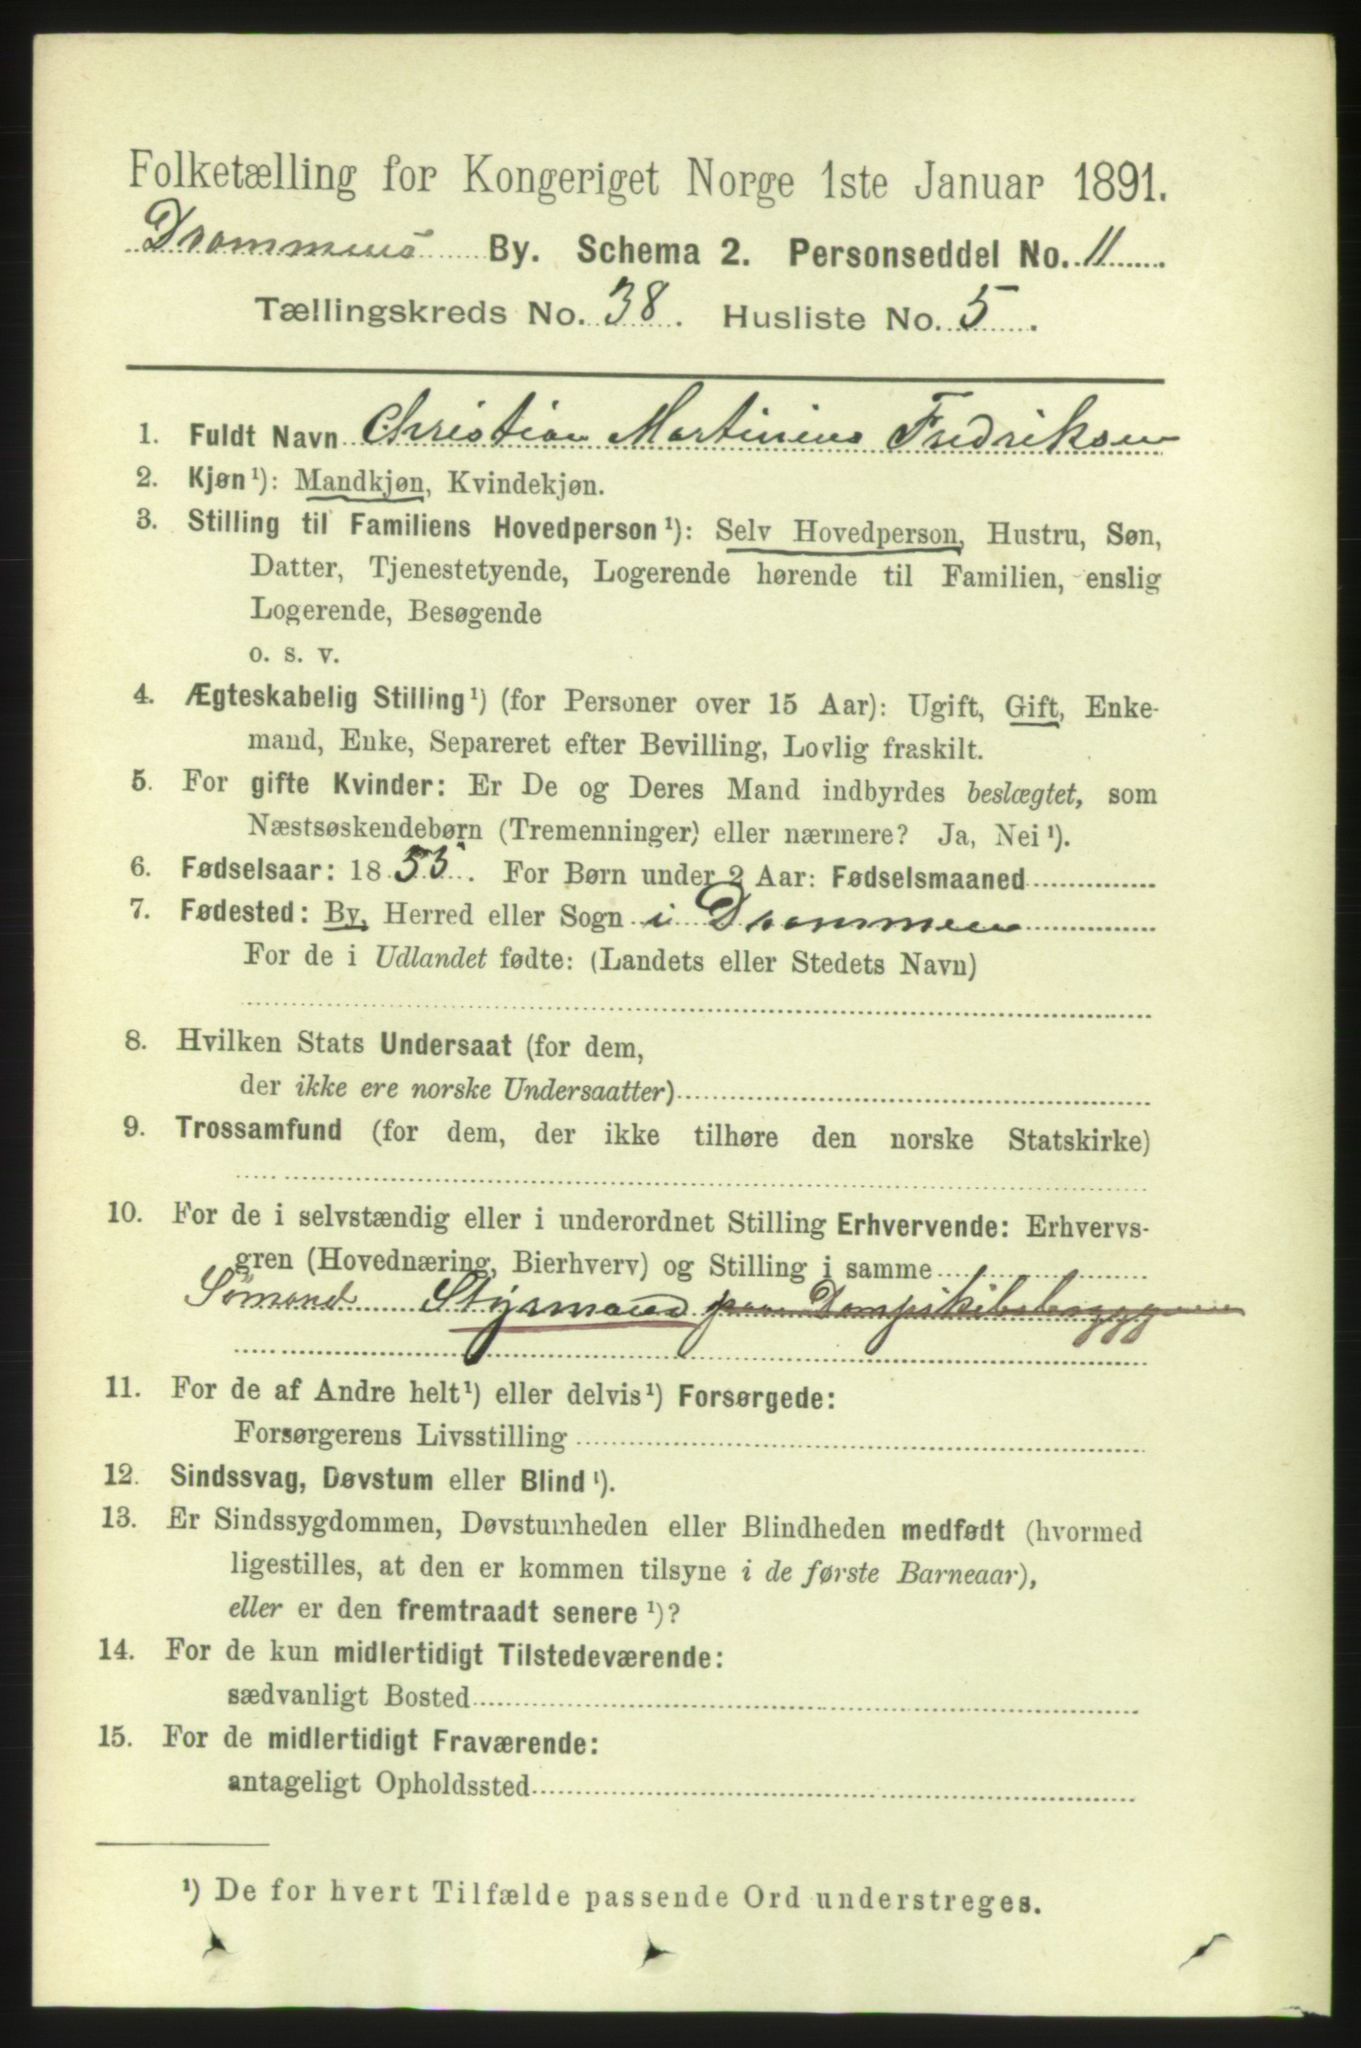 Folketælling for Kongeriget Norge 1ste Januar 1891.
Drammens By. Schema 2. Personseddel No. 11
Tællingskreds No. 38. Husliste No. 5.
1. Fuldt Navn Christian Martinius Fredriksen
2. Kjøn ¹): Mandkjøn, Kvindekjøn.
3. Stilling til Familiens Hovedperson ¹): Selv Hovedperson, Hustru, Søn,
Datter, Tjenestetyende, Logerende hørende til Familien, enslig
Logerende, Besøgende
o. s. v.
4. Ægteskabelig Stilling ¹) (for Personer over 15 Aar): Ugift, Gift, Enke-
mand, Enke, Separeret efter Bevilling, Lovlig fraskilt.
5. For gifte Kvinder: Er De og Deres Mand indbyrdes beslægtet, som
Næstsøskendebørn (Tremenninger) eller nærmere? Ja, Nei ¹).
6. Fødselsaar: 1855. For Børn under 2 Aar: Fødselsmaaned
7. Fødested: By, Herred eller Sogn i Drammen
For de i Udlandet fødte: (Landets eller Stedets Navn)
8. Hvilken Stats Undersaat (for dem,
der ikke ere norske Undersaatter)
9. Trossamfund (for dem, der ikke tilhøre den norske Statskirke)
10. For de i selvstændig eller i underordnet Stilling Erhvervende: Erhvervs-
gren (Hovednæring, Bierhverv) og Stilling i samme
Sømand Styrmand paa Dampskibsbryggen
11. For de af Andre helt ¹) eller delvis ¹) Forsørgede:
Forsørgerens Livsstilling
12. Sindssvag, Døvstum eller Blind ¹).
13. Er Sindssygdommen, Døvstumheden eller Blindheden medfødt (hvormed
ligestilles, at den er kommen tilsyne i de første Barneaar),
eller er den fremtraadt senere ¹)?
14. For de kun midlertidigt Tilstedeværende:
sædvanligt Bosted
15. For de midlertidigt Fraværende:
antageligt Opholdssted
¹) De for hvert Tilfælde passende Ord understreges.